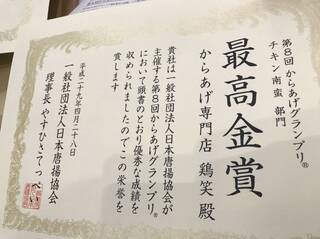 第8回 からあげグランプリ®
チキン南蛮 部門
最高金賞
からあげ専門店 鶏笑 殿
貴社は一般社団法人日本唐揚協会が
主催する第8回からあげグランプリ®
において頭書のとおり優秀な成績を
収められましたのでこの栄誉を
賞します
平成二十九年四月二十八日
一般社団法人日本唐揚協会
理事長 やすひさてっぺい